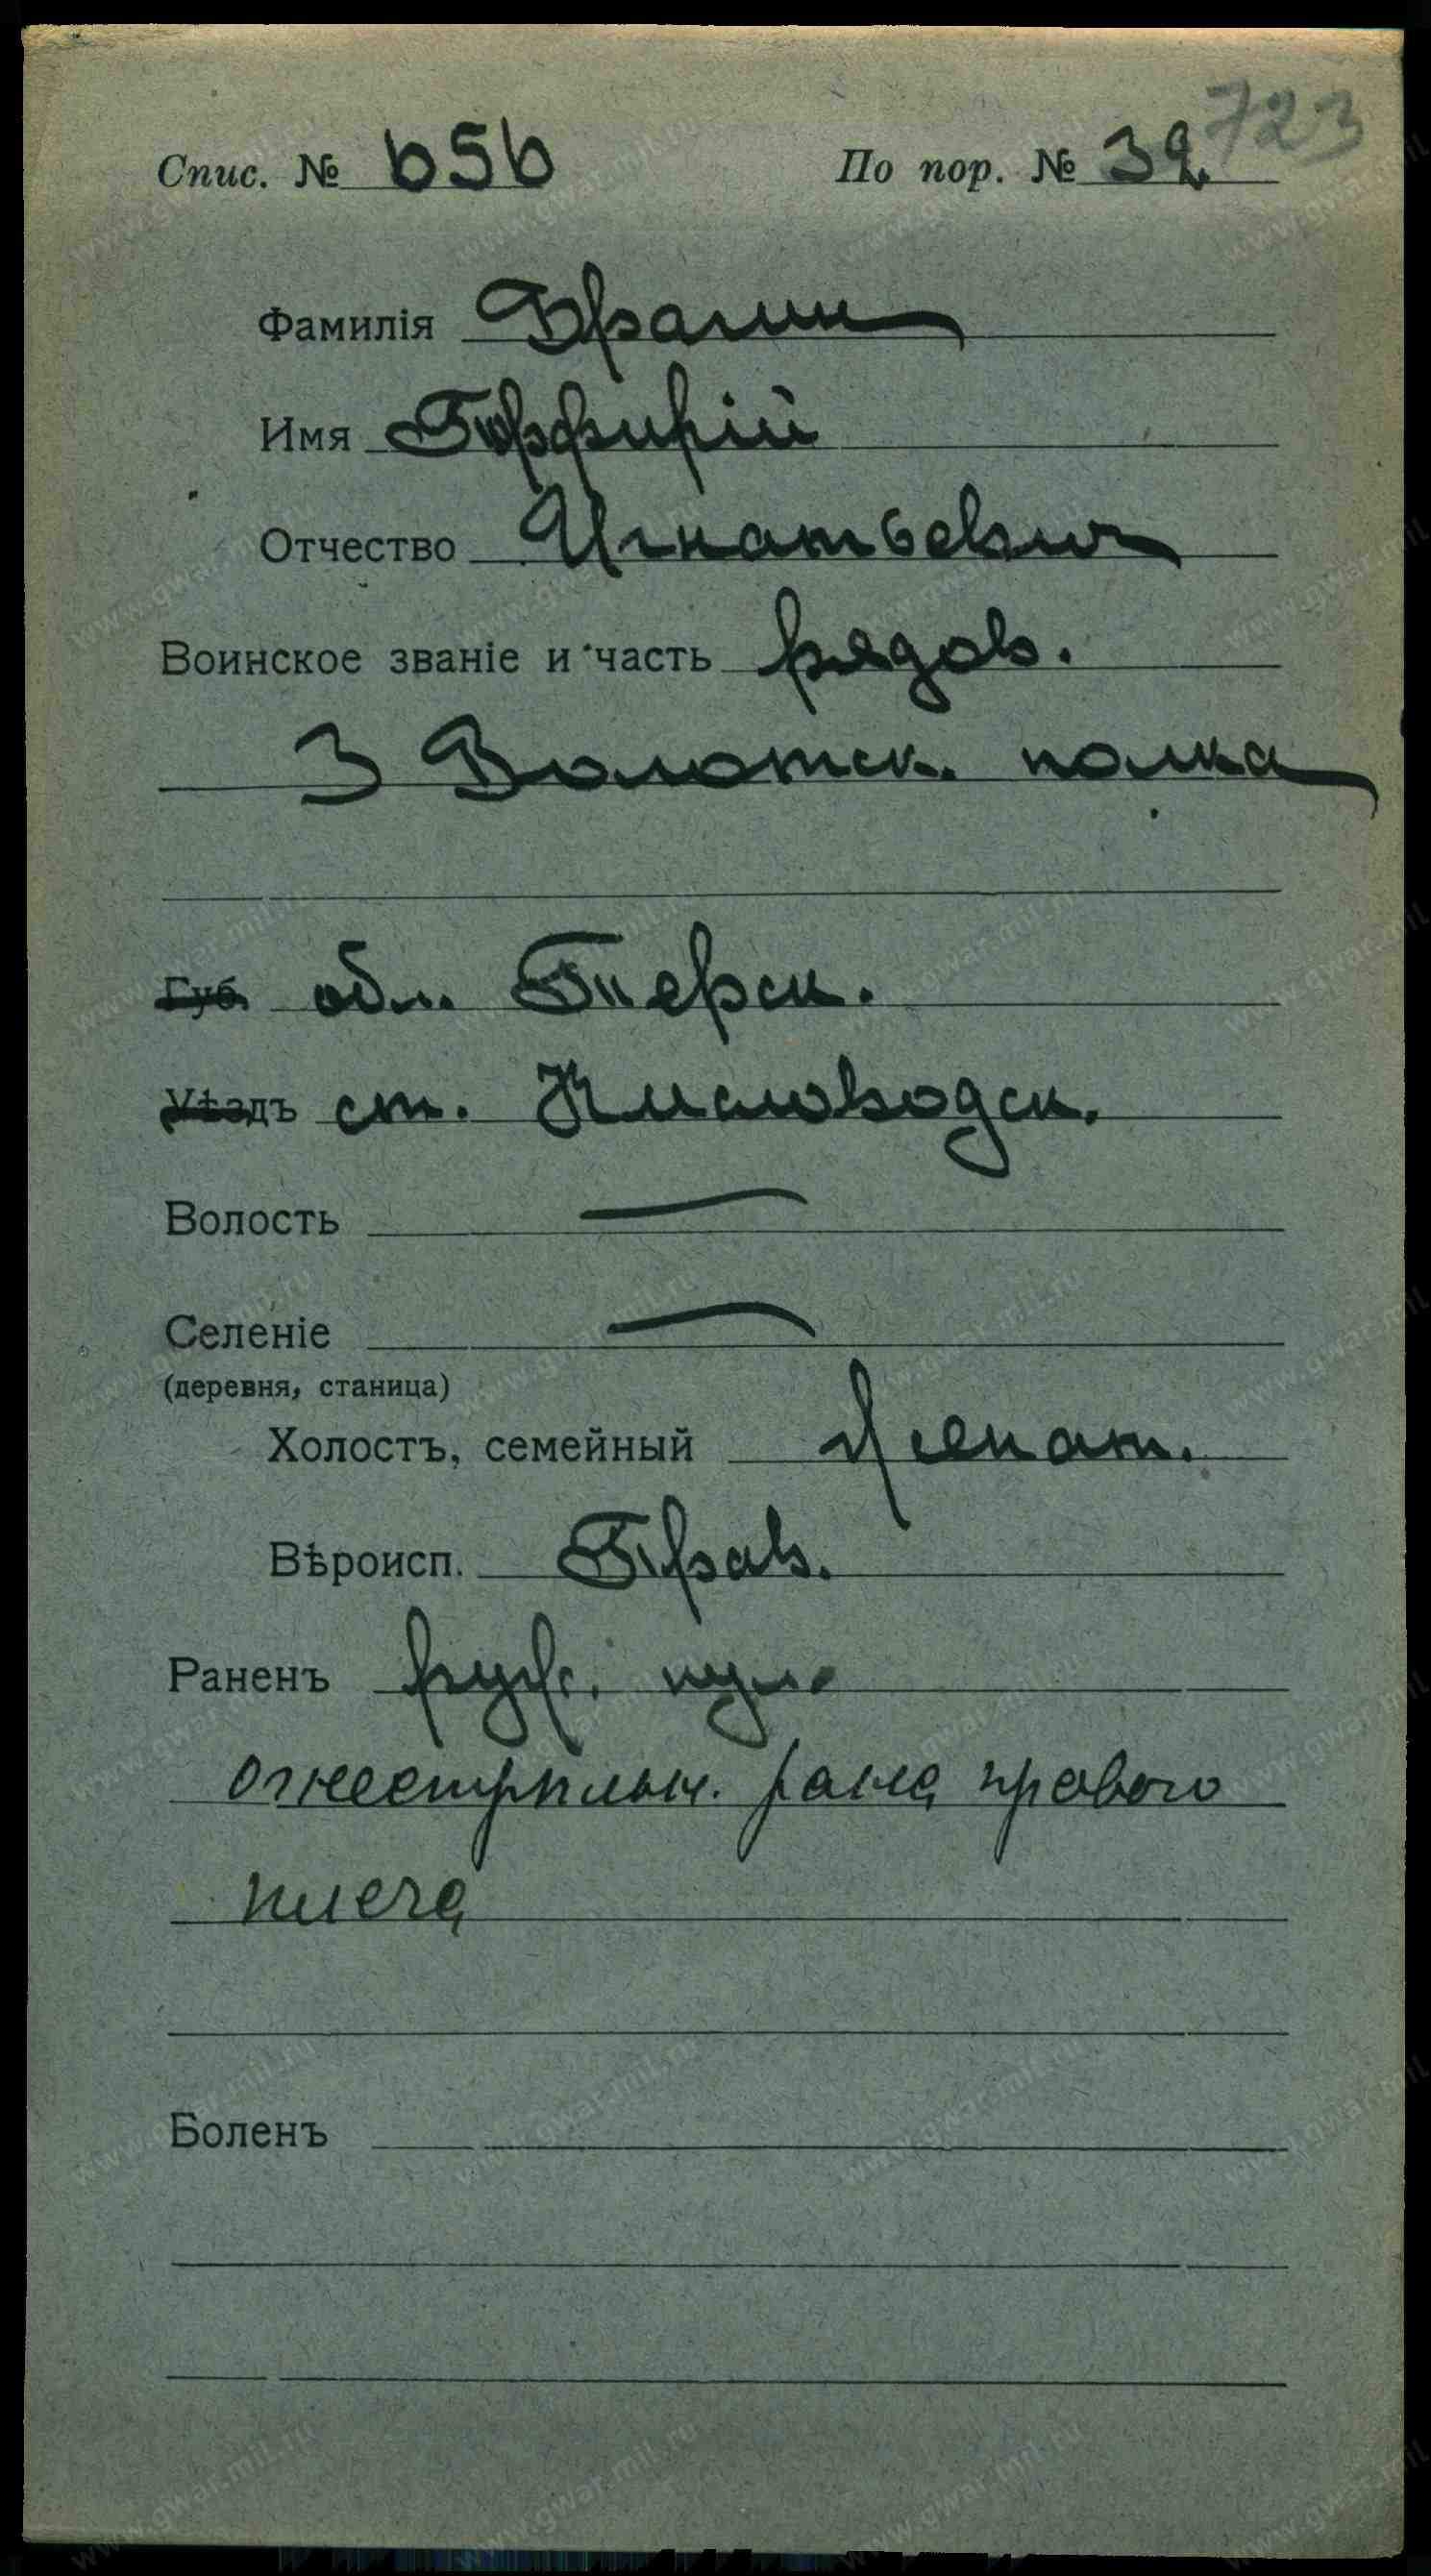 723
Спис. № 656 По пор. № 39.
Фамилія Брагин
Имя Порфирій
Отчество Игнатьевич
Воинское званіе и часть рядов.
3 Волотск. полка
Губ. обл. Терск.
Уѣздъ ст. Кисловодск.
Волость —
Селеніе —
(деревня, станица)
Холостъ, семейный женат.
Вѣроисп. Прав.
Раненъ руж. пул.
огнестрѣльн. рана правого
плеча
Боленъ